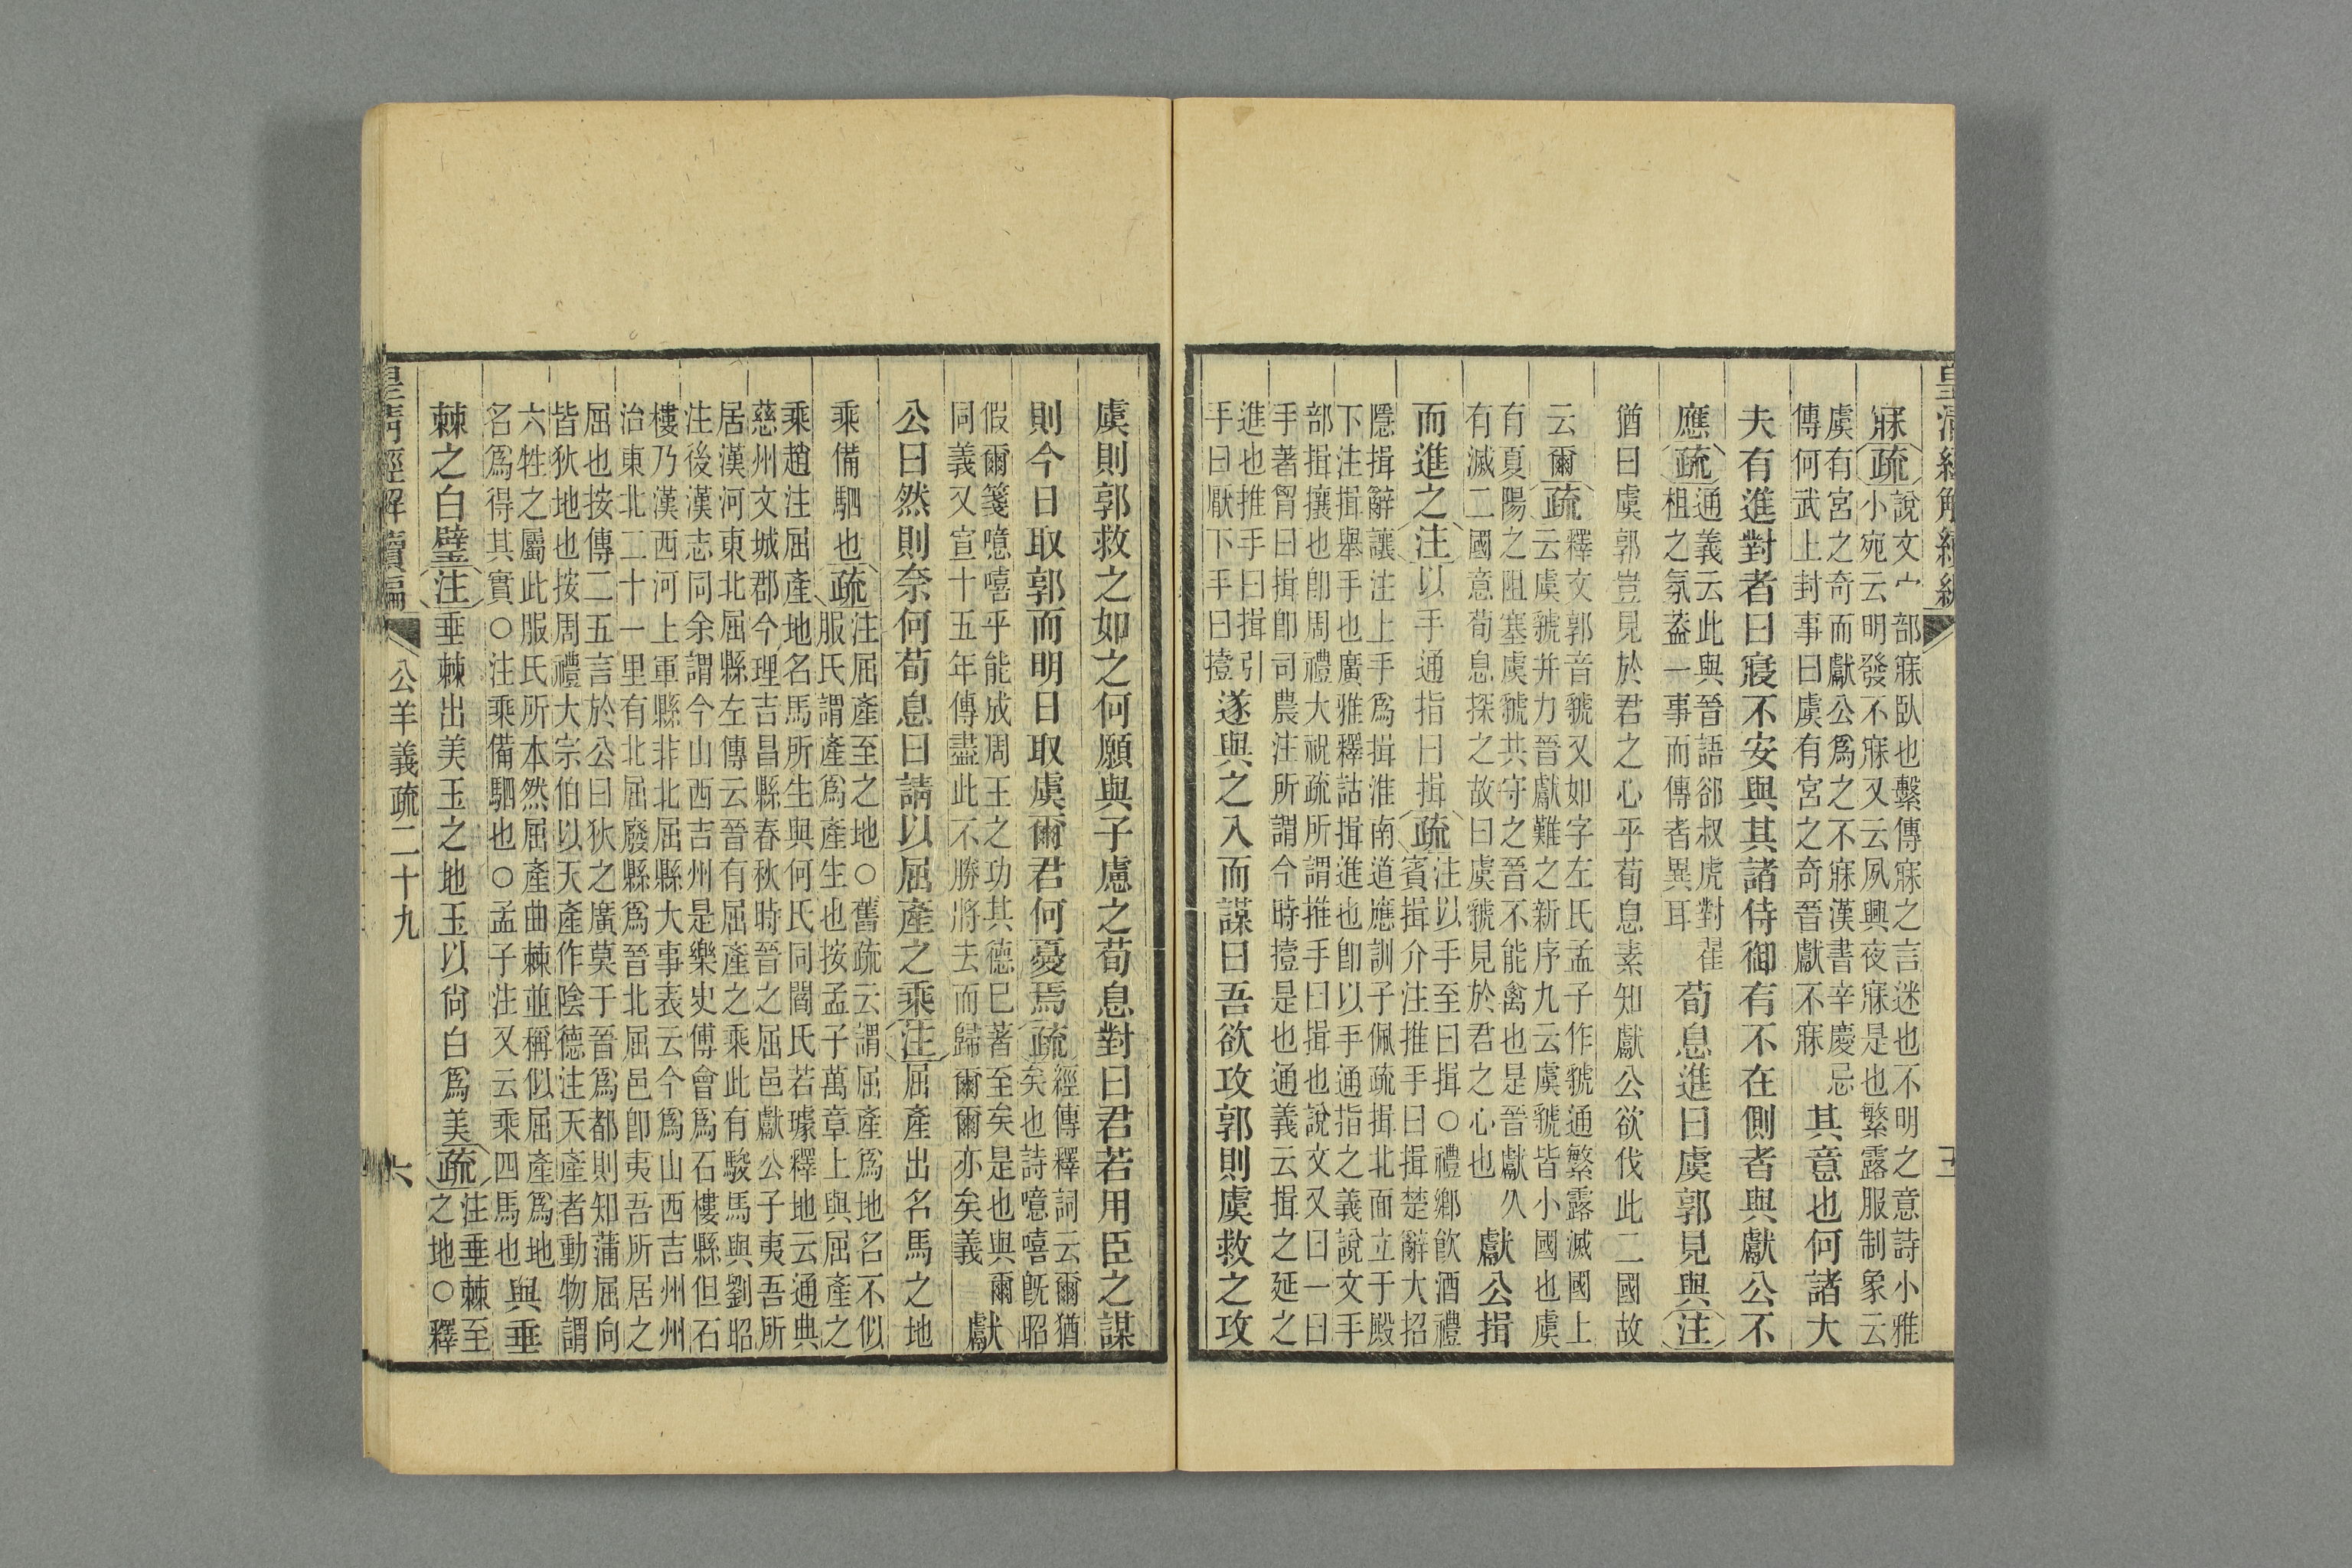 皇清經解續編
寐疏說文宀部寐臥也繫傳寐之言迷也不明之意詩小雅
小宛云明發不寐又云夙興夜寐是也繁露服制象云
虞有宮之奇而獻公爲之不寐漢書辛慶忌
傳何武上封事曰虞有宮之奇晉獻不寐
其意也何諸大
夫有進對者曰寢不安與其諸侍御有不在側者與獻公不
應疏通義云此與晉語郤叔虎對翟
柤之氛葢一事而傳者異耳
荀息進曰虞郭見與注
猶曰虞郭豈見於君之心乎荀息素知獻公欲伐此二國故
云爾疏釋文郭音虢又如字左氏孟子作虢通繁露滅國上
云虞虢并力晉獻難之新序九云虞虢皆小國也虞
有夏陽之阻塞虞虢共守之晉不能禽也是晉獻久
有滅二國意荀息探之故曰虞虢見於君之心也
獻公揖
而進之注以手通指曰揖疏注以手至曰揖○禮鄉飮酒禮
賓揖介注推手曰揖楚辭大招
隱揖辭讓注上手爲揖淮南道應訓子佩疏揖北面立于殿
下注揖舉手也廣雅釋詁揖進也卽以手通指之義說文手
部揖攘也卽周禮大祝疏所謂推手曰揖也說文又曰一曰
手著胷曰揖卽司農注所謂今時撎是也通義云揖之延之
進也推手曰揖引
手曰厭下手曰撎
遂與之入而謀曰吾欲攻郭則虞救之攻
虞則郭救之如之何願與子慮之荀息對曰君若用臣之謀
則今日取郭而明日取虞爾君何憂焉疏經傳釋詞云爾猶
矣也詩噫嘻旣昭
假爾箋噫嘻乎能成周王之功其德已著至矣是也與爾
同義又宣十五年傳盡此不勝將去而歸爾爾亦矣義
獻
公曰然則奈何荀息曰請以屈產之乘注屈產出名馬之地
乘備駟也疏注屈產至之地○舊疏云謂屈產爲地名不似
服氏謂產爲產生也按孟子萬章上與屈產之
乘趙注屈產地名馬所生與何氏同閻氏若璩釋地云通典
慈州文城郡今理吉昌縣春秋時晉之屈邑獻公子夷吾所
居漢河東北屈縣左傳云晉有屈產之乘此有駿馬與劉昭
注後漢志同余謂今山西吉州是樂史傅會爲石樓縣但石
樓乃漢西河上軍縣非北屈縣大事表云今爲山西吉州州
治東北二十一里有北屈廢縣爲晉北屈邑卽夷吾所居之
屈也按傳二五言於公曰狄之廣莫于晉爲都則知蒲屈向
皆狄地也按周禮大宗伯以天產作陰德注天產者動物謂
六牲之屬此服氏所本然屈產曲棘並稱似屈產爲地
名爲得其實○注乘備駟也○孟子注又云乘四馬也
與垂
棘之白璧注垂棘出美玉之地玉以尙白爲美疏注垂棘至
之地○釋
皇清經解續編
公羊義疏二十九
六